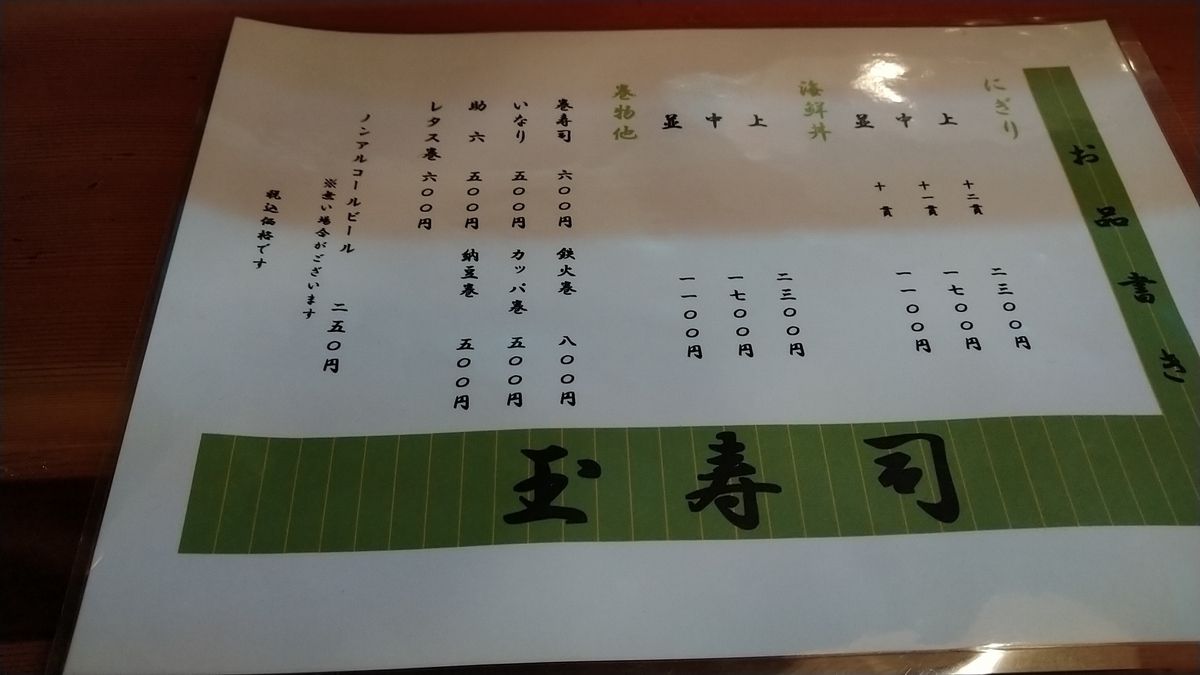 お品書き
にぎり
上 十二貫 二三〇〇円
中 十一貫 一七〇〇円
並 十貫 一一〇〇円
海鮮丼
上 二三〇〇円
中 一七〇〇円
並 一一〇〇円
巻物他
巻寿司 六〇〇円 鉄火巻 八〇〇円
いなり 五〇〇円 カッパ巻 五〇〇円
助六 五〇〇円 納豆巻 五〇〇円
レタス巻 六〇〇円
ノンアルコールビール 二五〇円
※無い場合がございます
税込価格です
玉寿司